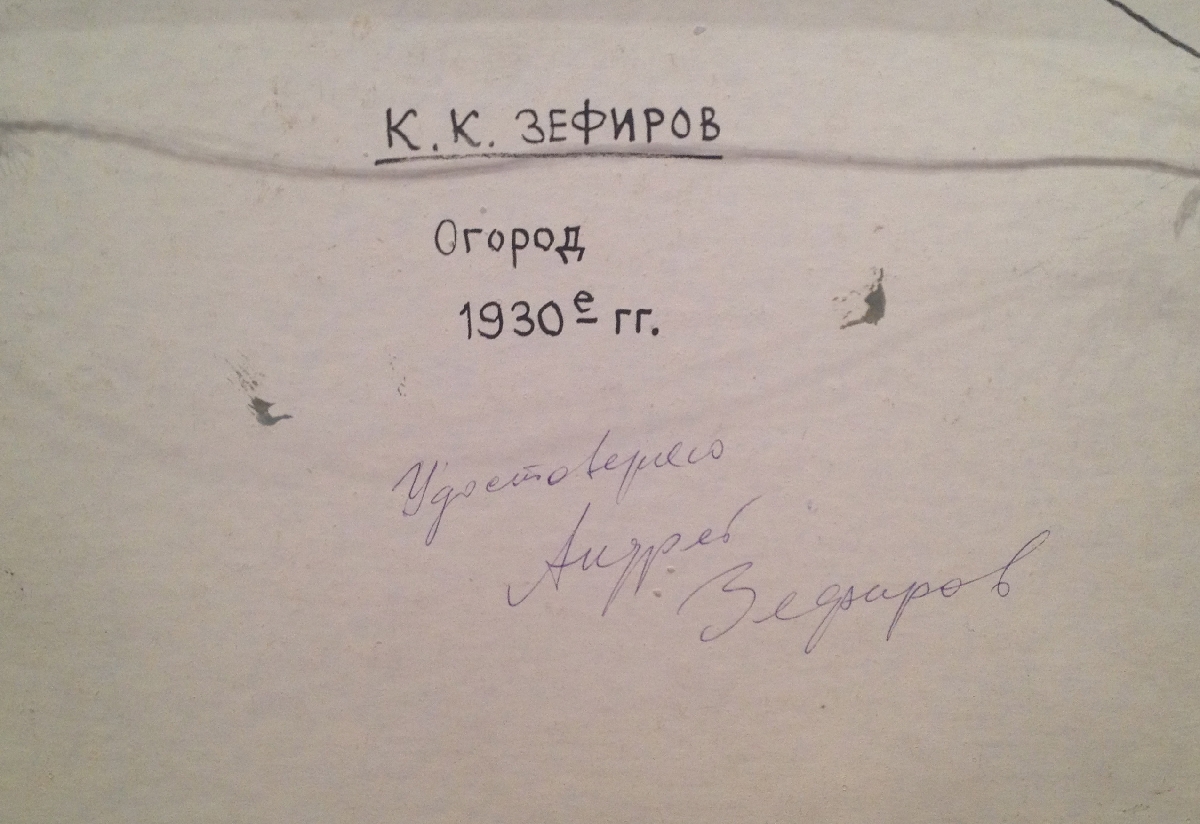 К. К. ЗЕФИРОВ
Огород
1930е гг.
Удостоверяю
Андрей
Зефиров